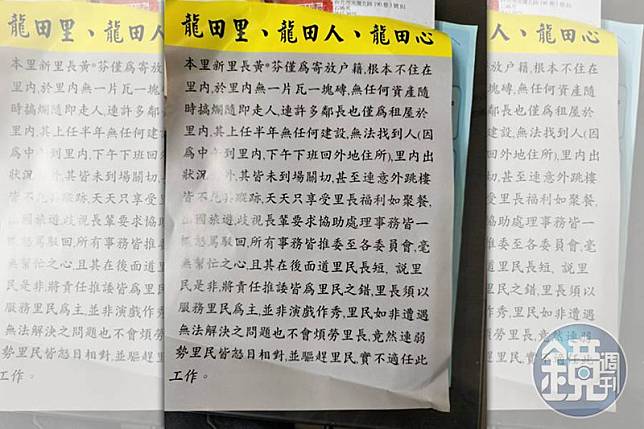 龍田里、龍田人、龍田心
本里新里長黃*芬僅為寄放户籍,根本不住在
里內,於里內無一片瓦一塊磚,無任何資產隨
時搞爛隨即走人,連許多鄰長也僅為租屋於
里內,其上任半年無任何建設,無法找到人(因
為中午到里內,下午下班回外地住所),里內出
狀況 外,其皆未到場關切,甚至連意外跳樓
皆不見其蹤跡,天天只享受里長福利如聚餐,
出國旅遊,歧視長輩要求協助處理事務皆一
概怒罵駁回,所有事務皆推委至各委員會,毫
無幫忙之心,且其在後面道里民長短,說里
民是非,將責任推諉皆為里民之錯,里長須以
服務里民為主,並非演戲作秀,里民如非遭遇
無法解決之問題也不會煩勞里長,竟然連弱
勢里民皆怒目相對,並驅趕里民,實不適任此
工作。
鏡週刊